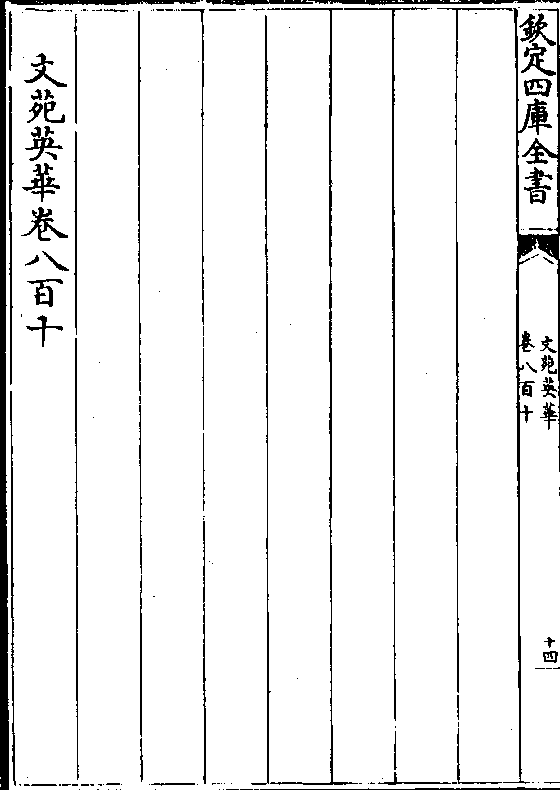 欽定四庫全書
文苑英華
卷八百十
十四
文苑英華卷八百十